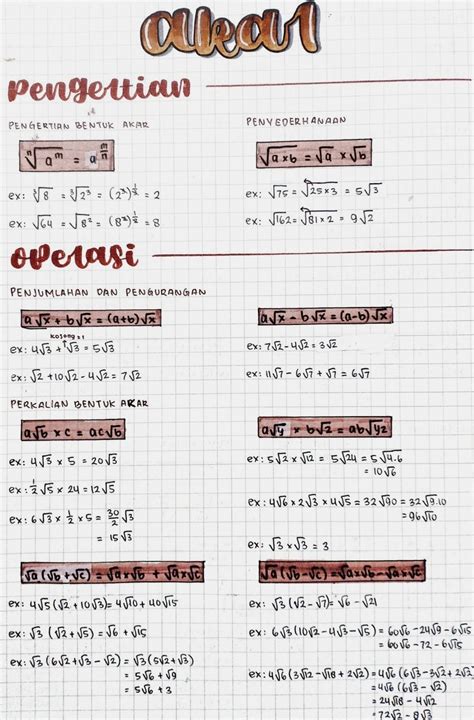 akar
Pengertian
PENGERTIAN BENTUK AKAR
ⁿ√aᵐ = a^(m/n)
ex: ³√8 = ³√2³ = (2³)^(1/3) = 2
ex: √64 = √8² = (8²)^(1/2) = 8
PENYEDERHANAAN
√a×b = √a × √b
ex: √75 = √25×3 = 5√3
ex: √162 = √81×2 = 9√2
operasi
PENJUMLAHAN DAN PENGURANGAN
a√x + b√x = (a+b)√x
kosong = 1
ex: 4√3 + √3 = 5√3
ex: √2 + 10√2 - 4√2 = 7√2
a√x - b√x = (a-b)√x
ex: 7√2 - 4√2 = 3√2
ex: 11√7 - 6√7 + √7 = 6√7
PERKALIAN BENTUK AKAR
a√b × c = ac√b
ex: 4√3 × 5 = 20√3
ex: 1/2√5 × 24 = 12√5
ex: 6√3 × 1/2 × 5 = 30/2 √3
= 15√3
a√y × b√z = ab√yz
ex: 5√2 × √12 = 5√24 = 5√4.6
= 10√6
ex: 4√6 × 2√3 × 4√5 = 32√90 = 32√9.10
= 96√10
ex: √3 × √3 = 3
√a (√b + √c) = √a×√b + √a×√c
ex: 4√5 (√2 + 10√3) = 4√10 + 40√15
ex: √3 (√2 + √5) = √6 + √15
ex: √3 (6√2 + √3 - √2) = √3 (5√2 + √3)
= 5√6 + √9
= 5√6 + 3
√a (√b - √c) = √a×√b - √a×√c
ex: √3 (√2 - √7) = √6 - √21
ex: 6√3 (10√2 - 4√3 - √5) = 60√6 - 24√9 - 6√15
= 60√6 - 72 - 6√15
ex: 4√6 (3√12 - √18 + 2√2) = 4√6 (6√3 - 3√2 + 2√2)
= 4√6 (6√3 - √2)
= 24√18 - 4√12
= 72√2 - 8√3